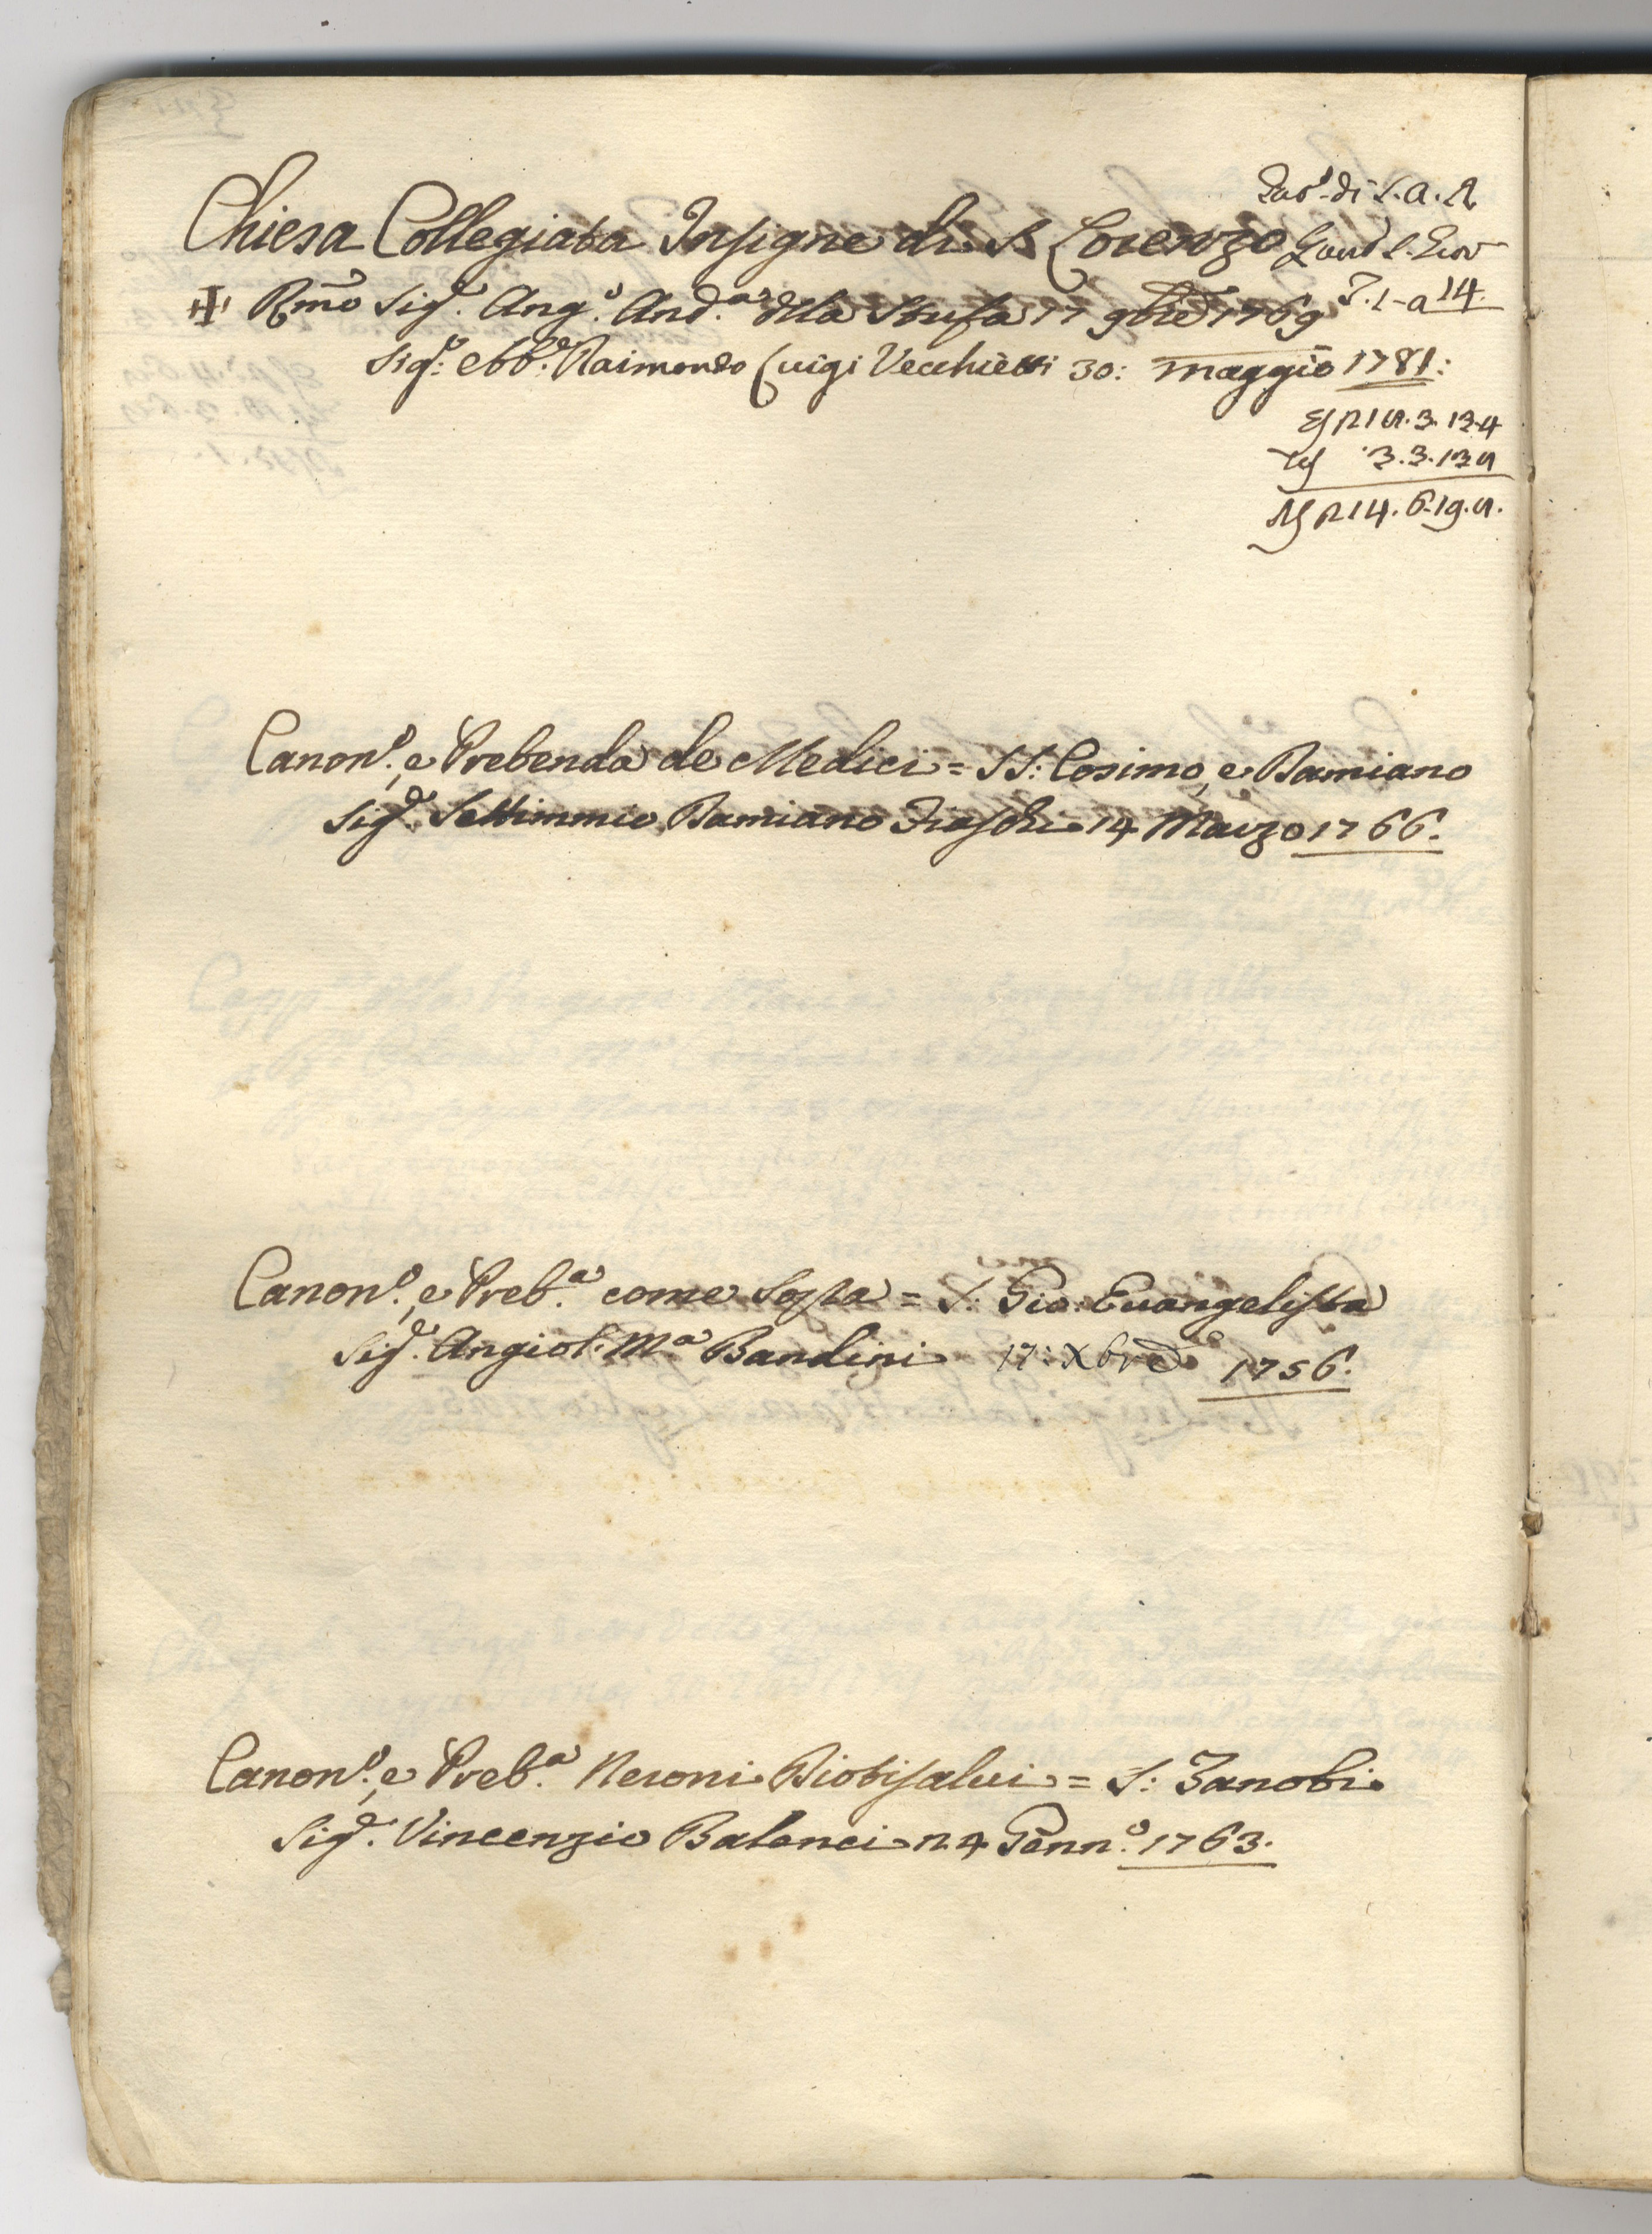 di S. A. R.
Chiesa Collegiata Insigne di S. Lorenzo
✠ Rmo Sigr. Ang.o And.a della Stufa 17 9bre 1769
T. 1-a 14.
Sigr. Abb.e Raimondo Luigi Vecchietti 30: maggio 1781:
3. 13. 4
3. 3. 13
14. 6. 19.
Canon.o, e Prebenda de Medici = SS: Cosimo, e Damiano
Sigr. Settimmio Damiano 14 Marzo 1766.
Canon.o, e Preb.a come Sopra = S: Gio: Evangelista
Sigr. Angiol: M.a Bandini 17: Xbre 1756.
Canon.o, e Preb.a Neroni Diotisalvi = S: Zanobi
Sigr. Vincenzio Balanci 24 Genn.o 1763.